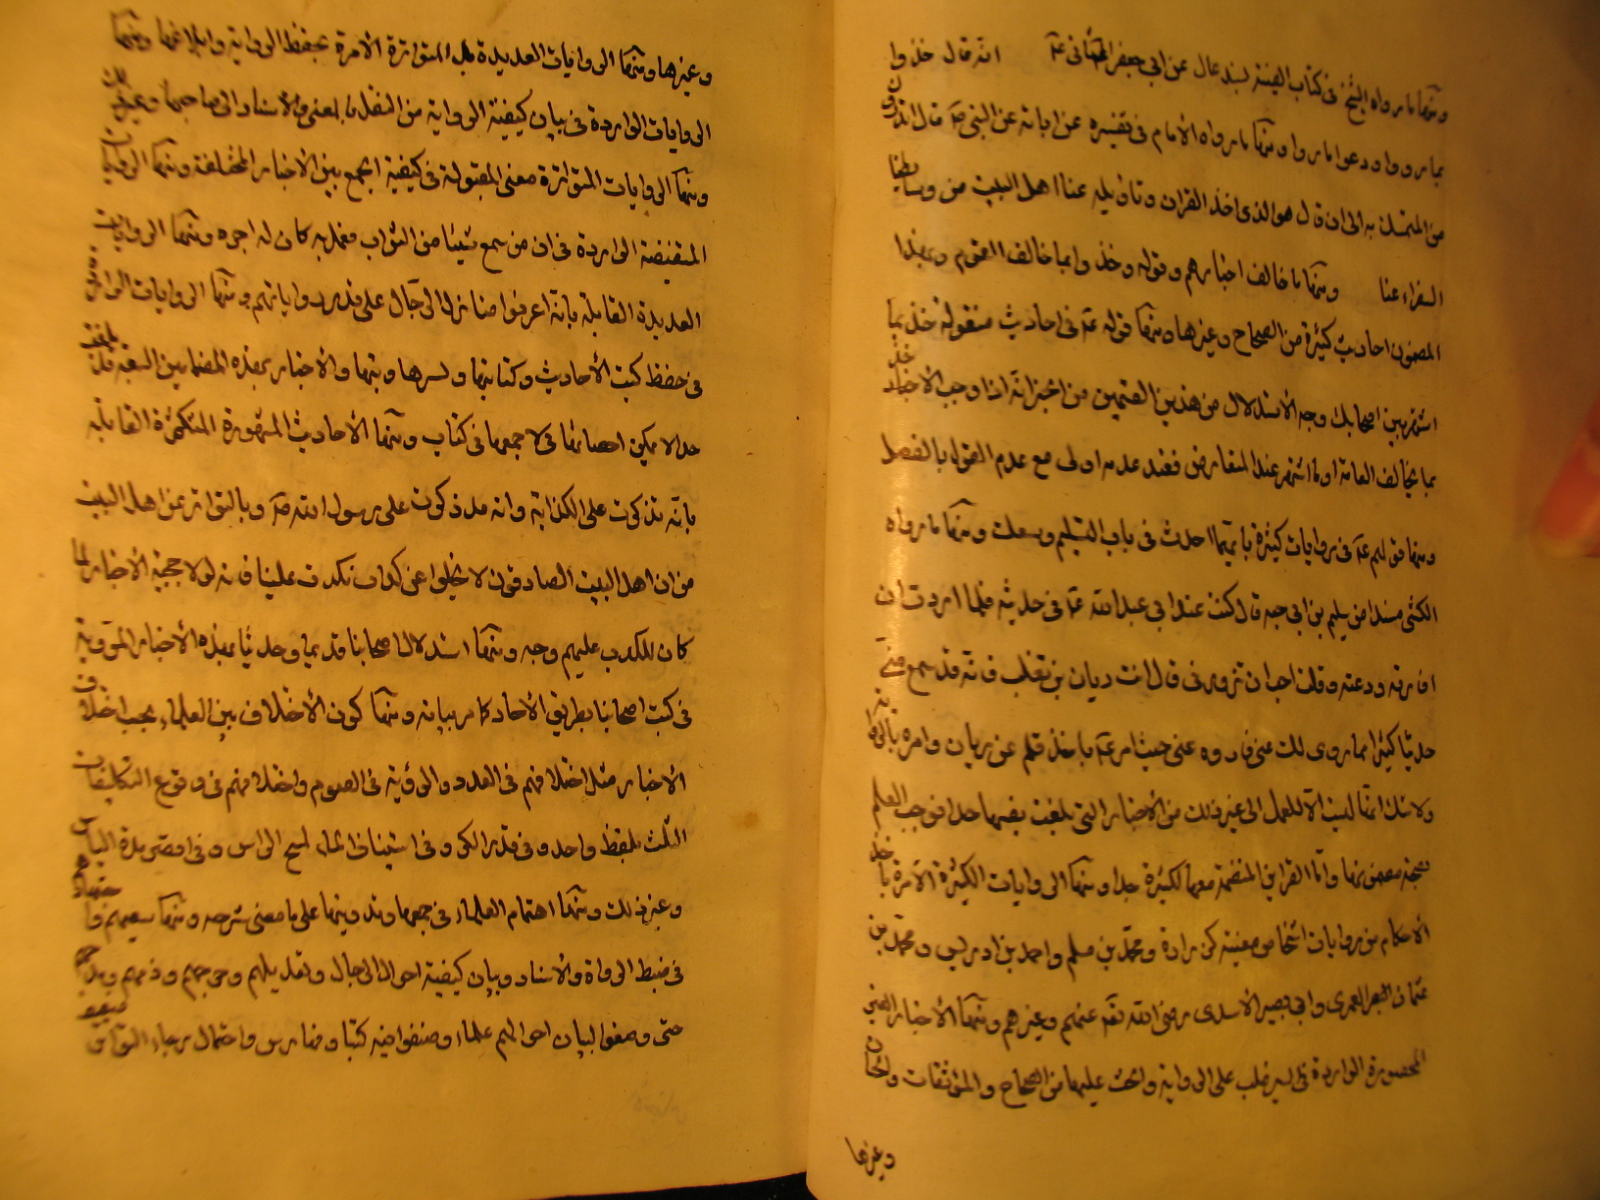 ومنها ما رواه الشيخ فى كتاب الغيبة بسند عال عن ابى جعفر الثانى عم انه قال خذوا
بما رووا ودعوا ما رأوا ومنها ما رواه الامام فى تفسيره عن ابائه عن النبى صم قال اتدرون
من المتمسك به الى ان قال هو الذى اخذ القران وتاويله عنا اهل البيت عن وسائطنا
السفراء عنا ومنها ما خالف اخبارهم وقوله وخذوا بما خالف القوم وبهذا
المضمون احاديث كثيرة من الصحاح وغيرها ومنها قوله عم فى احاديث منقولة خذ بما
اشتهر بين اصحابك وجه الاستدلال من هذين القسمين من الخبر انه اذا وجب الاخذ
بما يخالف العامة او ما اشتهر عند التعارض فعند عدمه اولى مع عدم القول بالفصل
ومنها قولهم عم فى روايات كثيرة بايهما اخذت فى باب التسليم وسعك ومنها ما رواه
الكشى مسندا من سليم بن ابى حبه قال كنت عند ابى عبد الله عم فى خدمته فلما اردت ان
افارقه ودعته وقلت احب ان تزودنى قال ائت ابان بن تغلب فانه قد سمع منى
حديثا كثيرا فما روى لك عنى فاروه عنى حيث امر عم باخذ قلم عن ابان وامره بالرواية
ولا شك انها ليست الا للعمل الى غير ذلك من الأخبار التى بلغت بعضها حدا فوجب العلم
بصحة مضمونها وأما القراين المنضمة معها لكثيرة جدا ومنها الروايات الكثيرة الآمرة باخذ
الأحكام من روايات اشخاص معينة كزرارة ومحمد بن مسلم واحمد بن ادريس ومحمد بن
عثمان العمرى وابى بصير الأسدى رضى الله تعم عنهم وغيرهم ومنها الأخبار الغير
المحصورة الواردة فى الترغيب على الرواية والحث عليها من الصحاح والموثقات والحسان
وغيرها
وغيرها ومنها الروايات العديدة بل المتواترة الآمرة بحفظ الرواية وابلاغها ومنها
الروايات الواردة فى بيان كيفية الرواية من النقل بالمعنى والأسناد الى صاحبها وغير ذلك
ومنها الروايات المتواترة معنى المقبولة فى كيفية الجمع بين الأخبار المختلفة ومنها الروايات
المستفيضة الواردة فى ان من سمع شيئا من الثواب فعمل به كان له اجره ومنها الروايات
العديدة القائلة بانه اعرفوا منازل الرجال على قدر رواياتهم ومنها الروايات الواردة
فى حفظ كتب الأحاديث وكتابتها ونشرها وبثها والأخبار بهذه المضامين السبعة قد بلغت
حد لا يمكن احصائها فى لا جمعها فى كتاب ومنها الأحاديث المشهورة المتكثرة القائلة
بانه قد كثرت على الكذابة وانه قد كذبت على رسول الله صم وبالتواتر عن اهل البيت
من ان اهل البيت الصادقون لا يخلوا عن كذاب يكذب علينا فانه لولا حجية الأخبار لما
كان للكذب عليهم وجه ومنها استدلال اصحابنا قديما وحديثا بهذه الأخبار المروية
فى كتب اصحابنا بطريق الأحاد كما مر بيانه ومنها كون الأختلاف بين العلماء بحسب اختلاف
الأخبار مثل اختلافهم فى العدد والرؤية فى الصوم واختلافهم فى وقوع التطليقات
الثلث بلفظ واحد وفى قدر الكر وفى استيناف الماء لمسح الراس وفى اقصى مدة النفاس
وغير ذلك ومنها اهتمام العلماء فى جمعها وتدوينها على ما مضى شرحه ومنها سعيهم واجتهادهم
فى ضبط الرواة والأسناد وبيان كيفية احوال الرجال وتعديلهم وجرحهم وذمهم ومدحهم
حتى وضعوا لبيان احوالهم علماء وصنفوا فيه كتبا وفهارس واحتمال رجاء